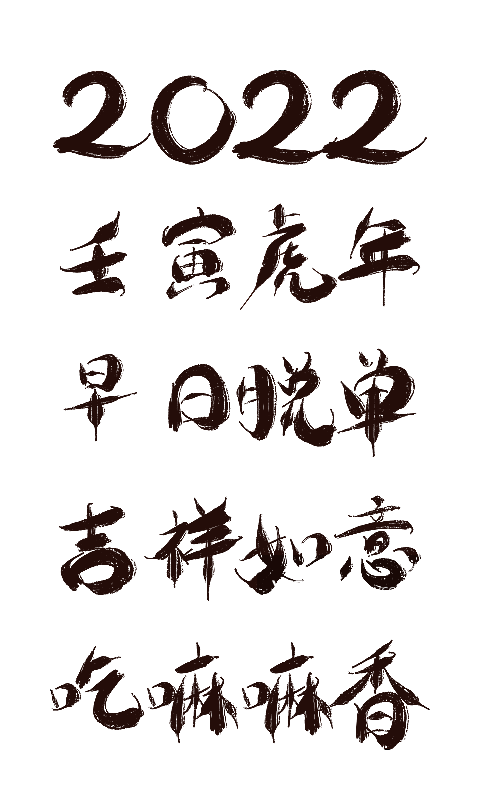 2022
壬寅虎年
早日脱单
吉祥如意
吃嘛嘛香